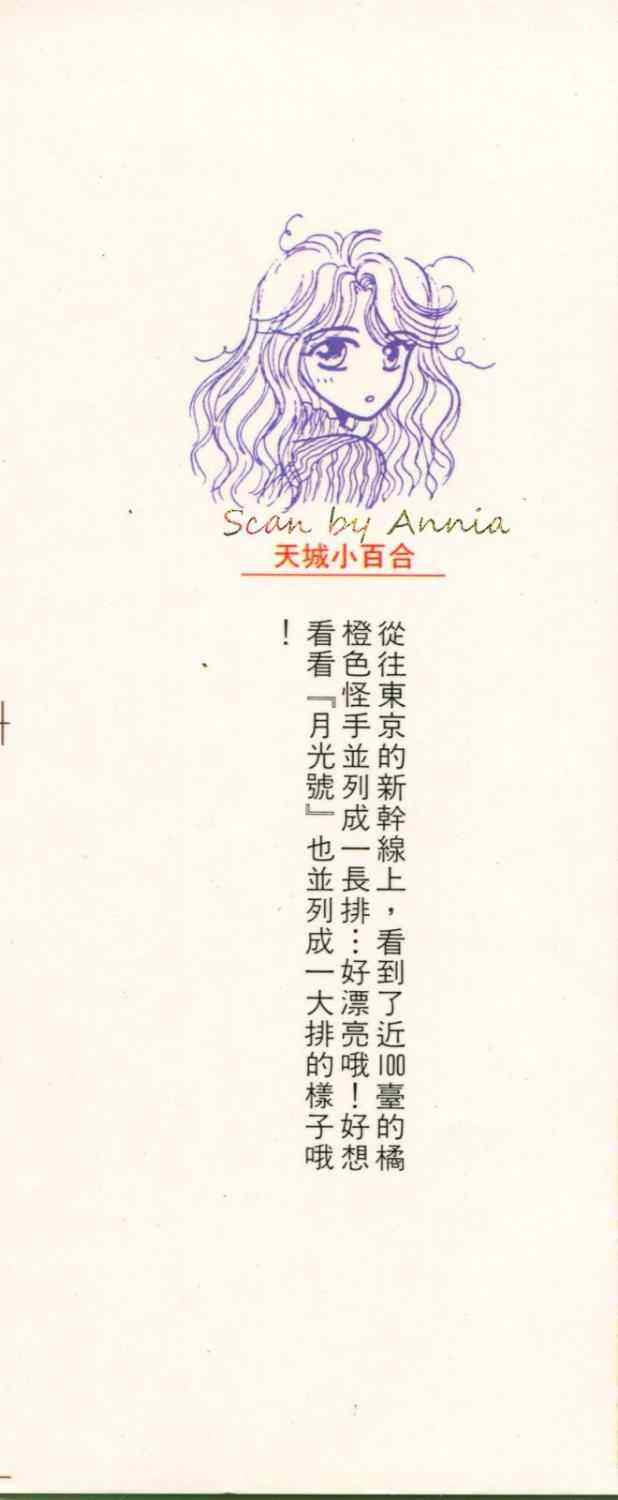 Scan by Annia
天城小百合
從往東京的新幹線上，看到了近100臺的橘
橙色怪手並列成一長排…好漂亮哦！好想
看看『月光號』也並列成一大排的樣子哦
！